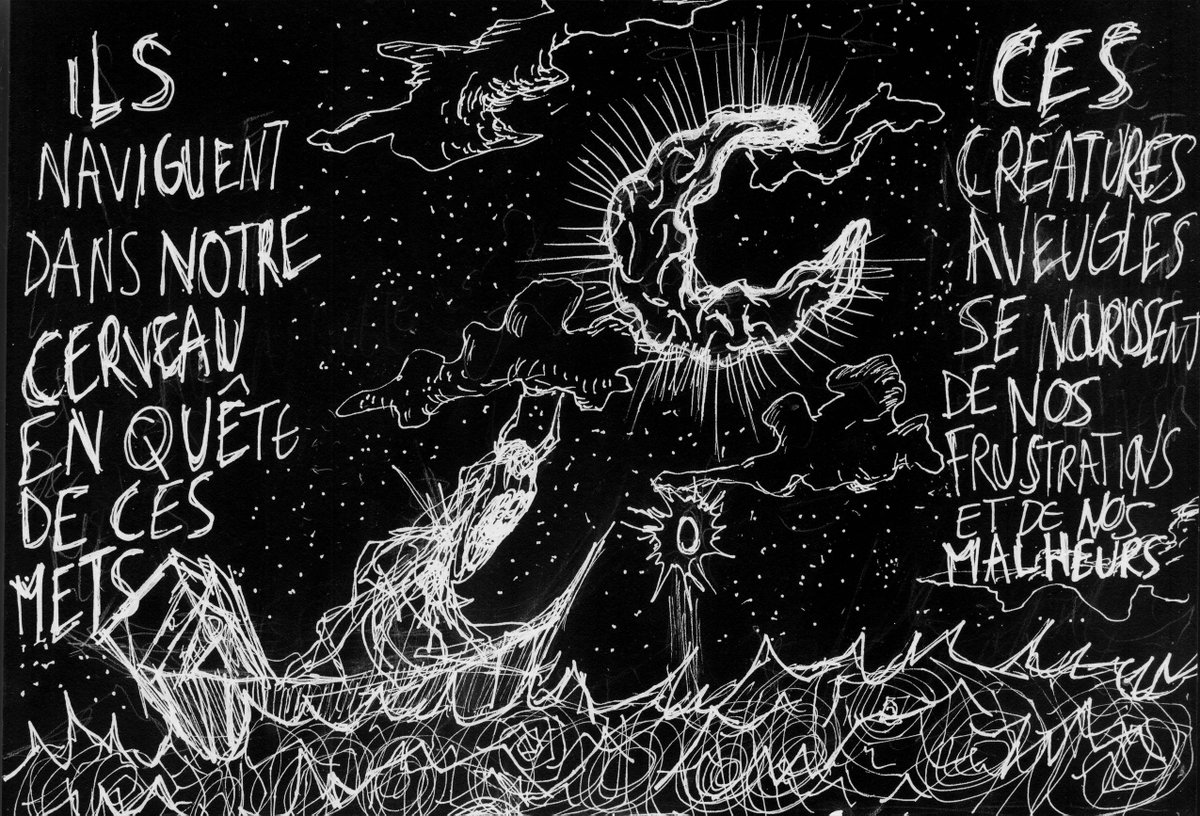 ILS
NAVIGUENT
DANS NOTRE
CERVEAU
EN QUÊTE
DE CES
METS
CES
CRÉATURES
AVEUGLES
SE NOURISSENT
DE NOS
FRUSTRATIONS
ET DE NOS
MALHEURS